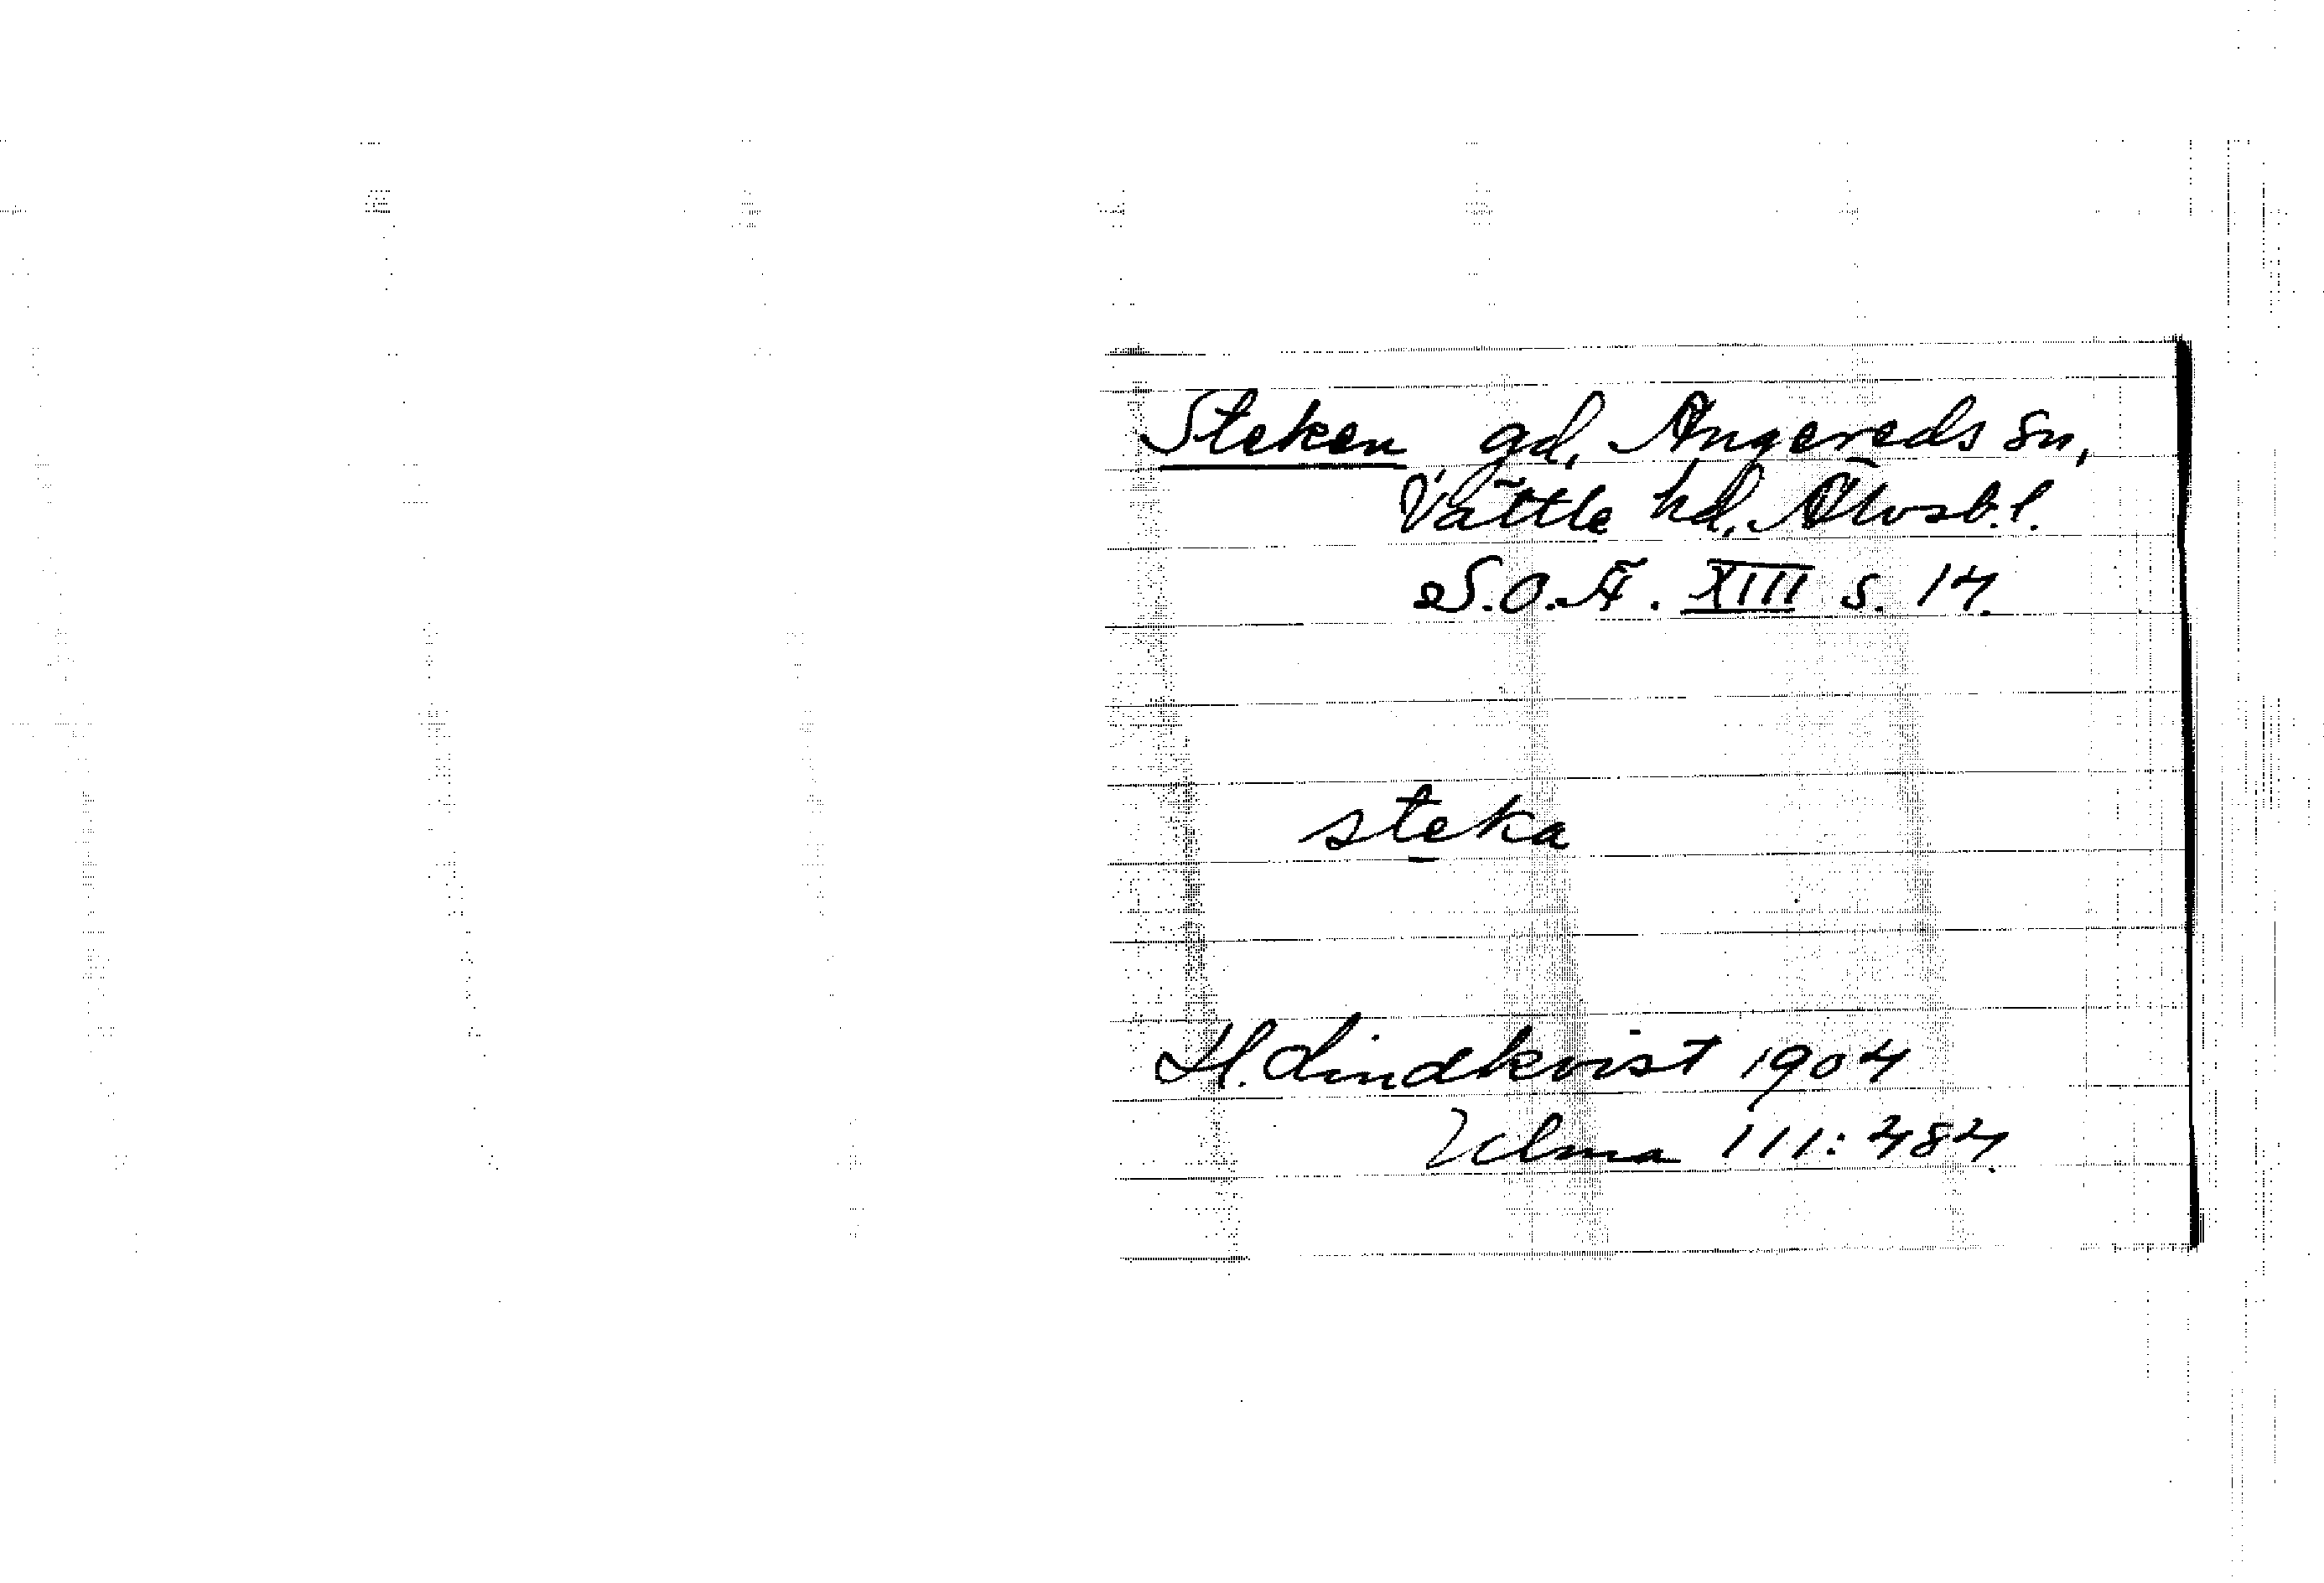 Steken gd, Angereds sn,
Vättle hd, Älvsb.l.
S.O.Ä. XIII s. 14.
steka
H. Lindkvist 1904
Ulma 111:484.